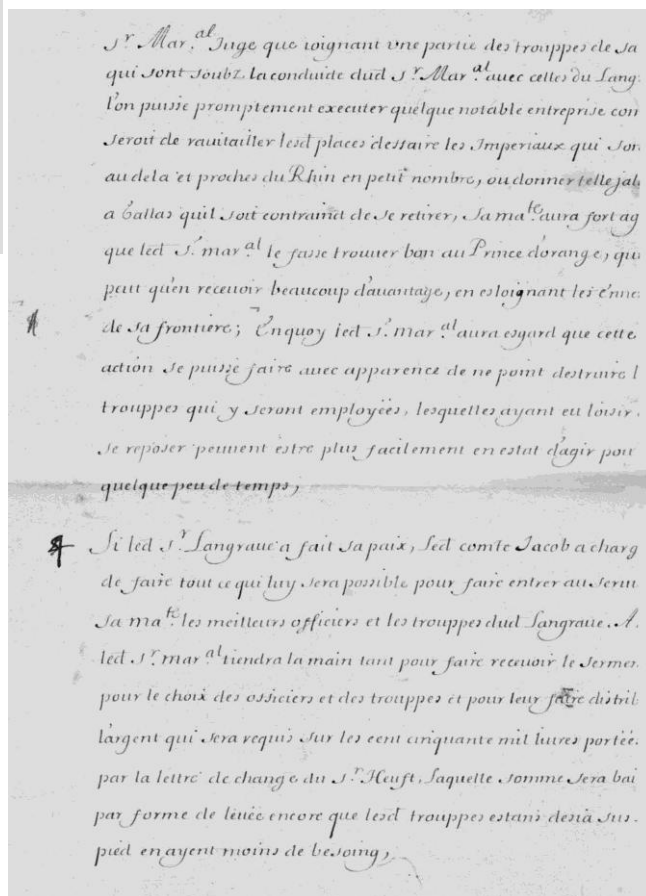 s.r Mar.al Juge que ioignant vne partie des trouppes de sa
qui sont soubz la conduide dud s.r Mar.al auec celles du Lang
l'on puisse promptement executer quelque notable entreprise con
seroit de rauitailler lesd places deffaire les Imperiaux qui son
au dela et proches du Rhin en petit nombre, ou donner telle jal
a Gallas quil soit contraind de se retirer, sa ma.te aura fort ag
que led s.r mar.al le fasse trouuer bon au Prince d'orange, qui
peut qu'en receuoir beaucoup d'auantage, en esloignant les enne
de sa frontiere; Enquoy led s.r mar.al aura esgard que cette
action se puisse faire auec apparence de ne point destruire l
trouppes qui y seront employées, lesquelles ayant eu loisir
se reposer peuuent estre plus facilement en estat d'agir pour
quelque peu de temps,
Si led s.r Langraue a fait sa paix, led comte Jacob a charg
de faire tout ce qui luy sera possible pour faire entrer au serui
sa ma.te les meilleurs officiers et les trouppes dud Langraue. A
led s.r mar.al tiendra la main tant pour faire receuoir le sermen
pour le choix des officiers et des trouppes et pour leur faire distrib
l'argent qui sera requis sur les cent cinquante mil liures portée
par la lettre de change du s.r Heuft, laquelle somme sera bai
par forme de leuée encore que lesd trouppes estans desia sus
pied en ayent moins de besoing,